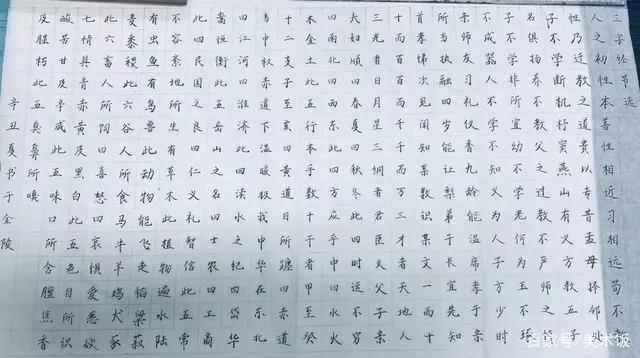 三字经节选
人之初性本善性相近习相远苟不教
性乃迁教之道贵以专昔孟母择邻处
子不学断机杼窦燕山有义方教五子
名俱扬养不教父之过教不严师之惰
子不学非所宜幼不学老何为玉不琢
不成器人不学不知义为人子方少时
亲师友习礼仪香九龄能温席孝于亲
所当执融四岁能让梨弟于长宜先知
首孝悌次见闻知某数识某文一而十
十而百百而千千而万三才者天地人
三光者日月星三纲者君臣义父子亲
夫妇顺曰春夏曰秋冬此四时运不穷
曰南北曰西东此四方应乎中曰水火
木金土此五行本乎数十干者甲至癸
十二支子至亥曰黄道日所躔曰赤道
当中权赤道下温暖极我中华在东北
曰江河曰淮济此四渎水之纪曰岱华
嵩恒衡此五岳山之名曰士农曰工商
此四民国之良曰仁义礼智信此五常
不容紊地所生有草木此植物遍水陆
有虫鱼有鸟兽此动物能飞走稻粱菽
麦黍稷此六谷人所食马牛羊鸡犬豕
此六畜人所饲曰喜怒曰哀惧爱恶欲
七情具青赤黄及黑白此五色目所识
酸苦甘及辛咸此五味口所含膻焦香
及腥朽此五臭鼻所嗅
辛丑夏书于金陵
百家号/美术饭